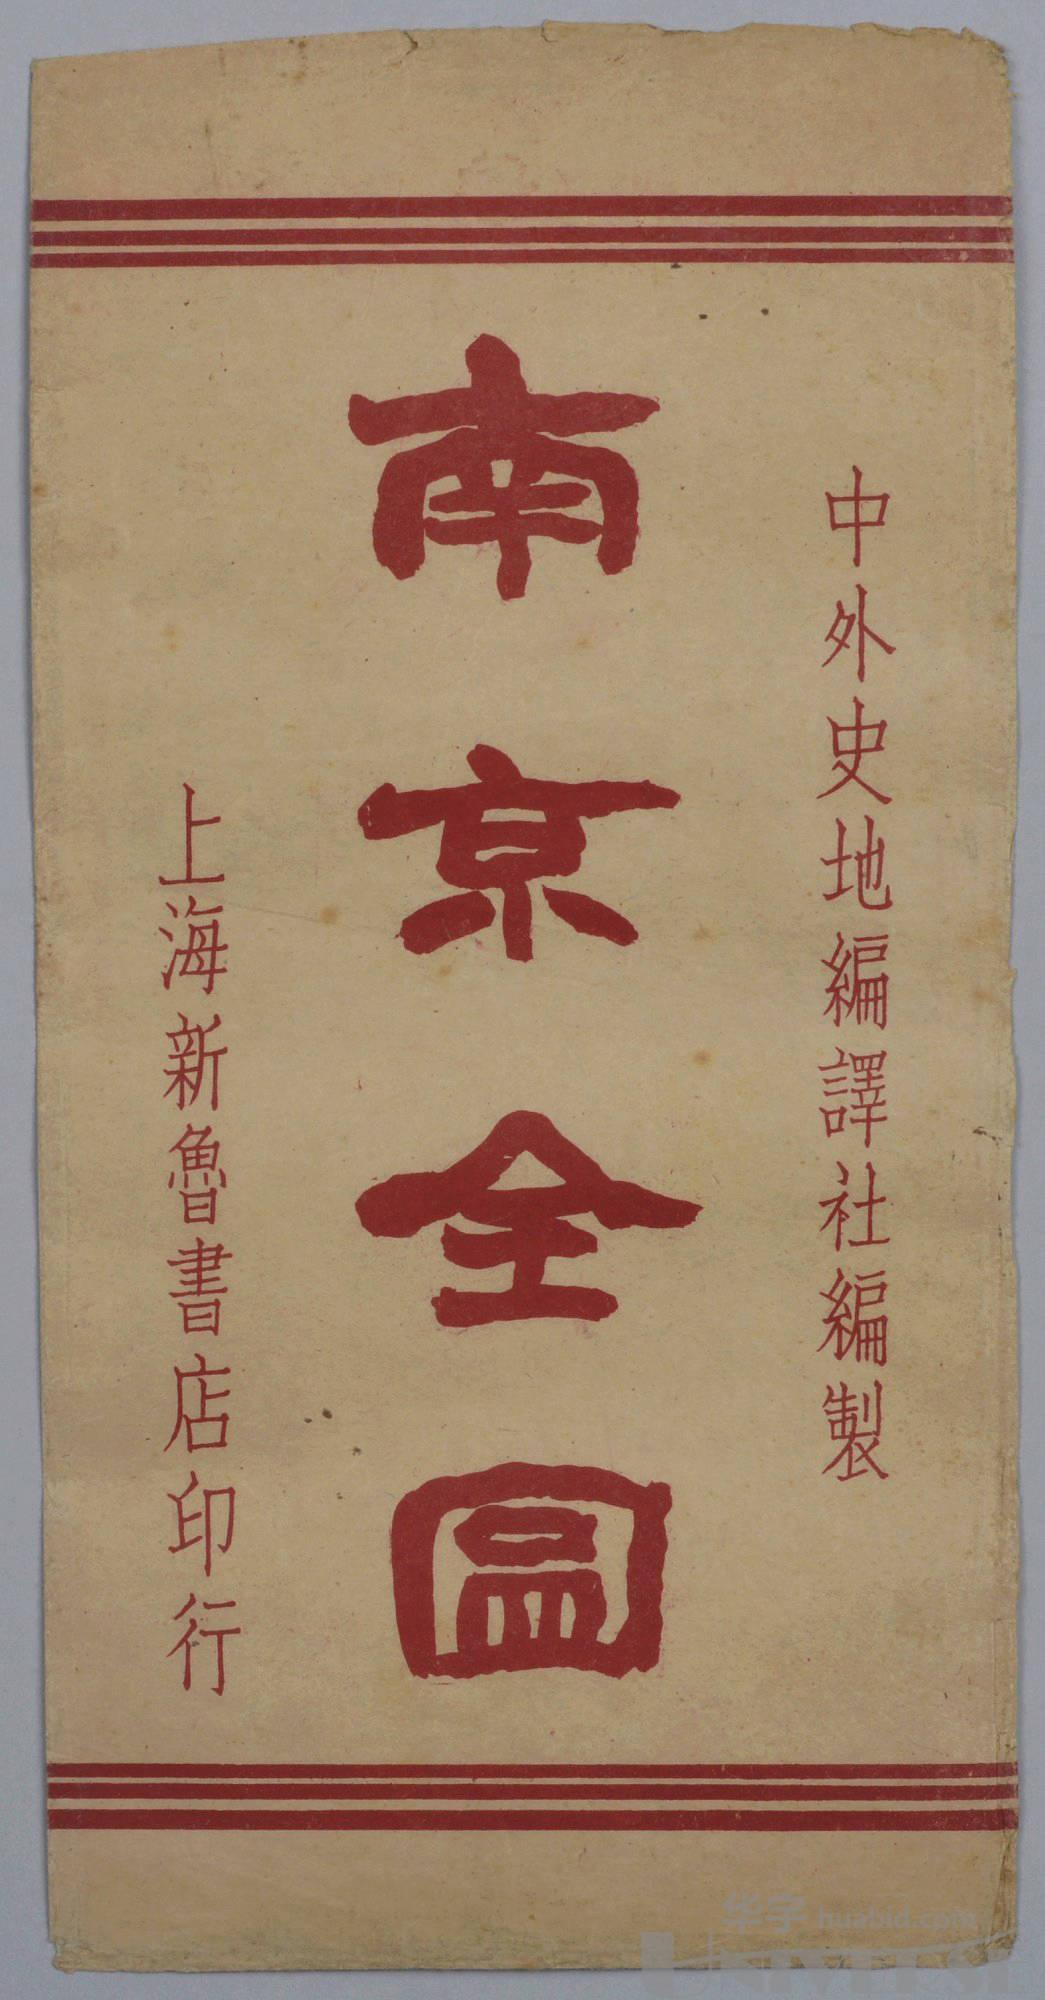 中外史地編譯社編製
南京全圖
上海新魯書店印行
华宇 huabid.com